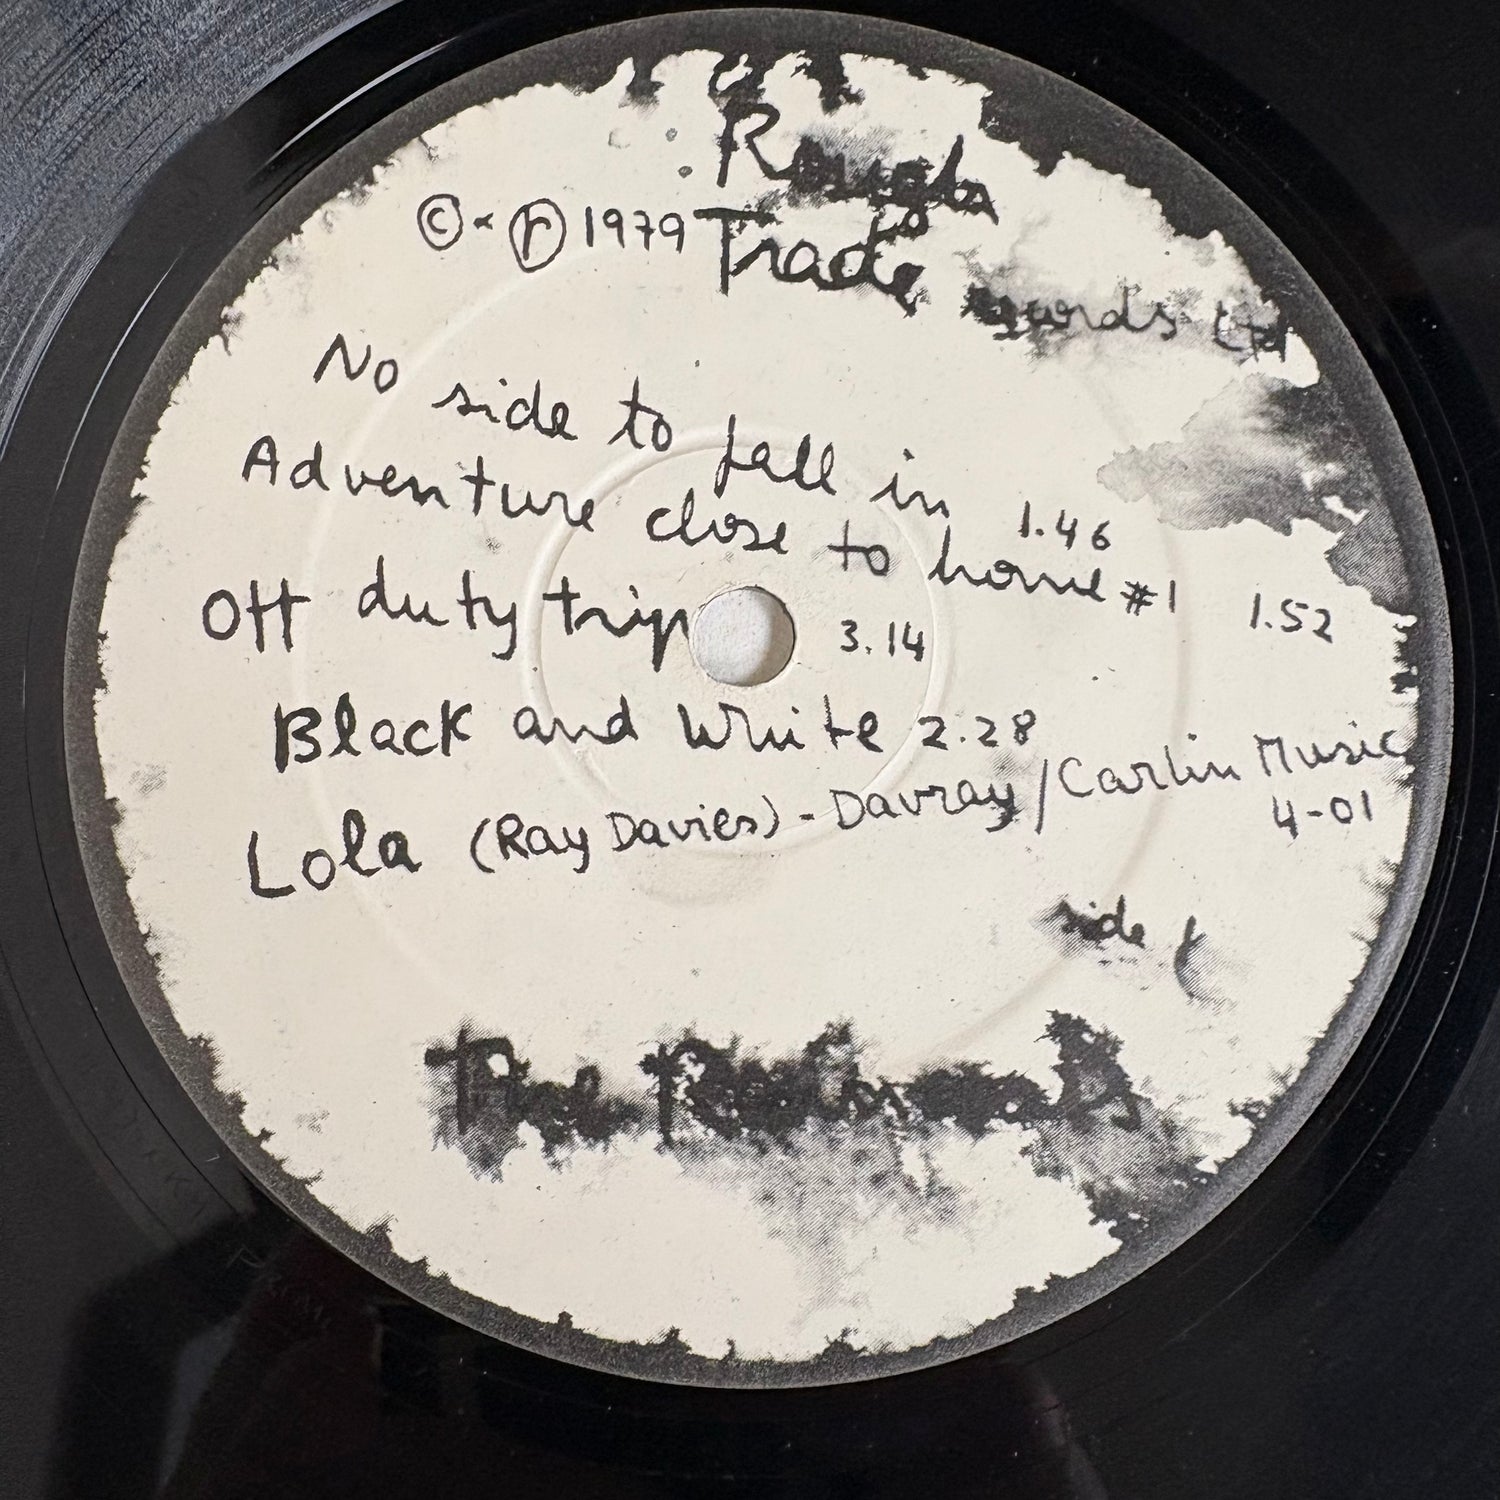 Rough
© & ℗ 1979 Trade records Ltd
No side to fall in 1.46
Adventure close to home #1 1.52
Off duty trip 3.14
Black and white 2.28
Lola (Ray Davies) - Davray / Carlin Music
4-01
side Y
The Raincoats